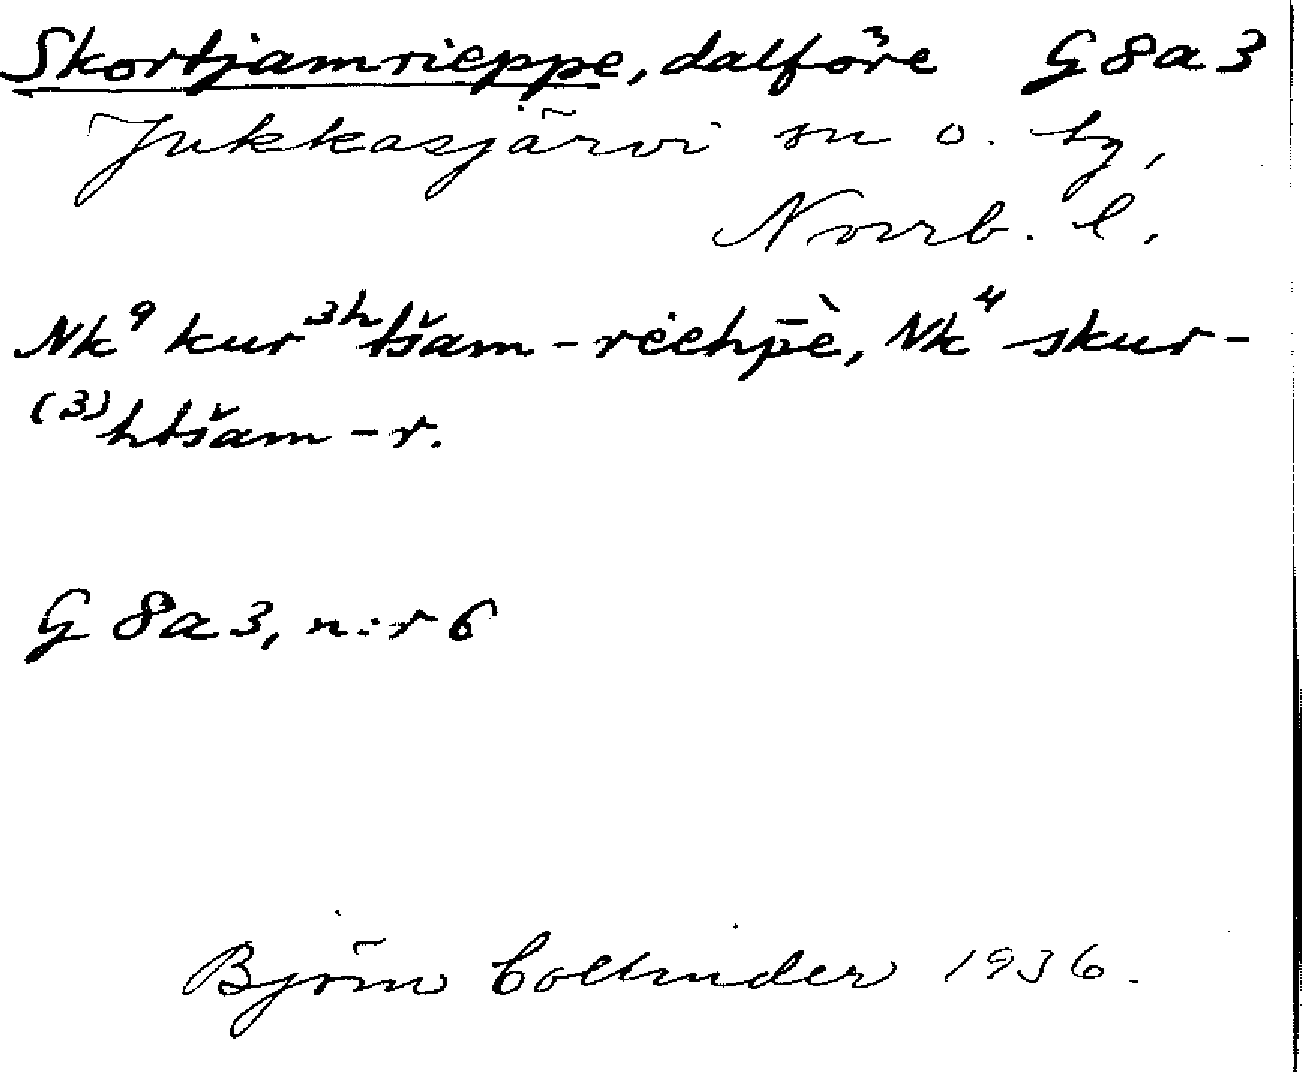 Skortjamrieppe, dalföre G8a3
Jukkasjärvi sn o. by,
Norrb. l.
Nk⁹ kur³ʰtšam-rėehp̄ė̀, Nk⁴ skur-
⁽³⁾htšam-r.
G 8a3, n:r 6
Björn Collinder 1936.